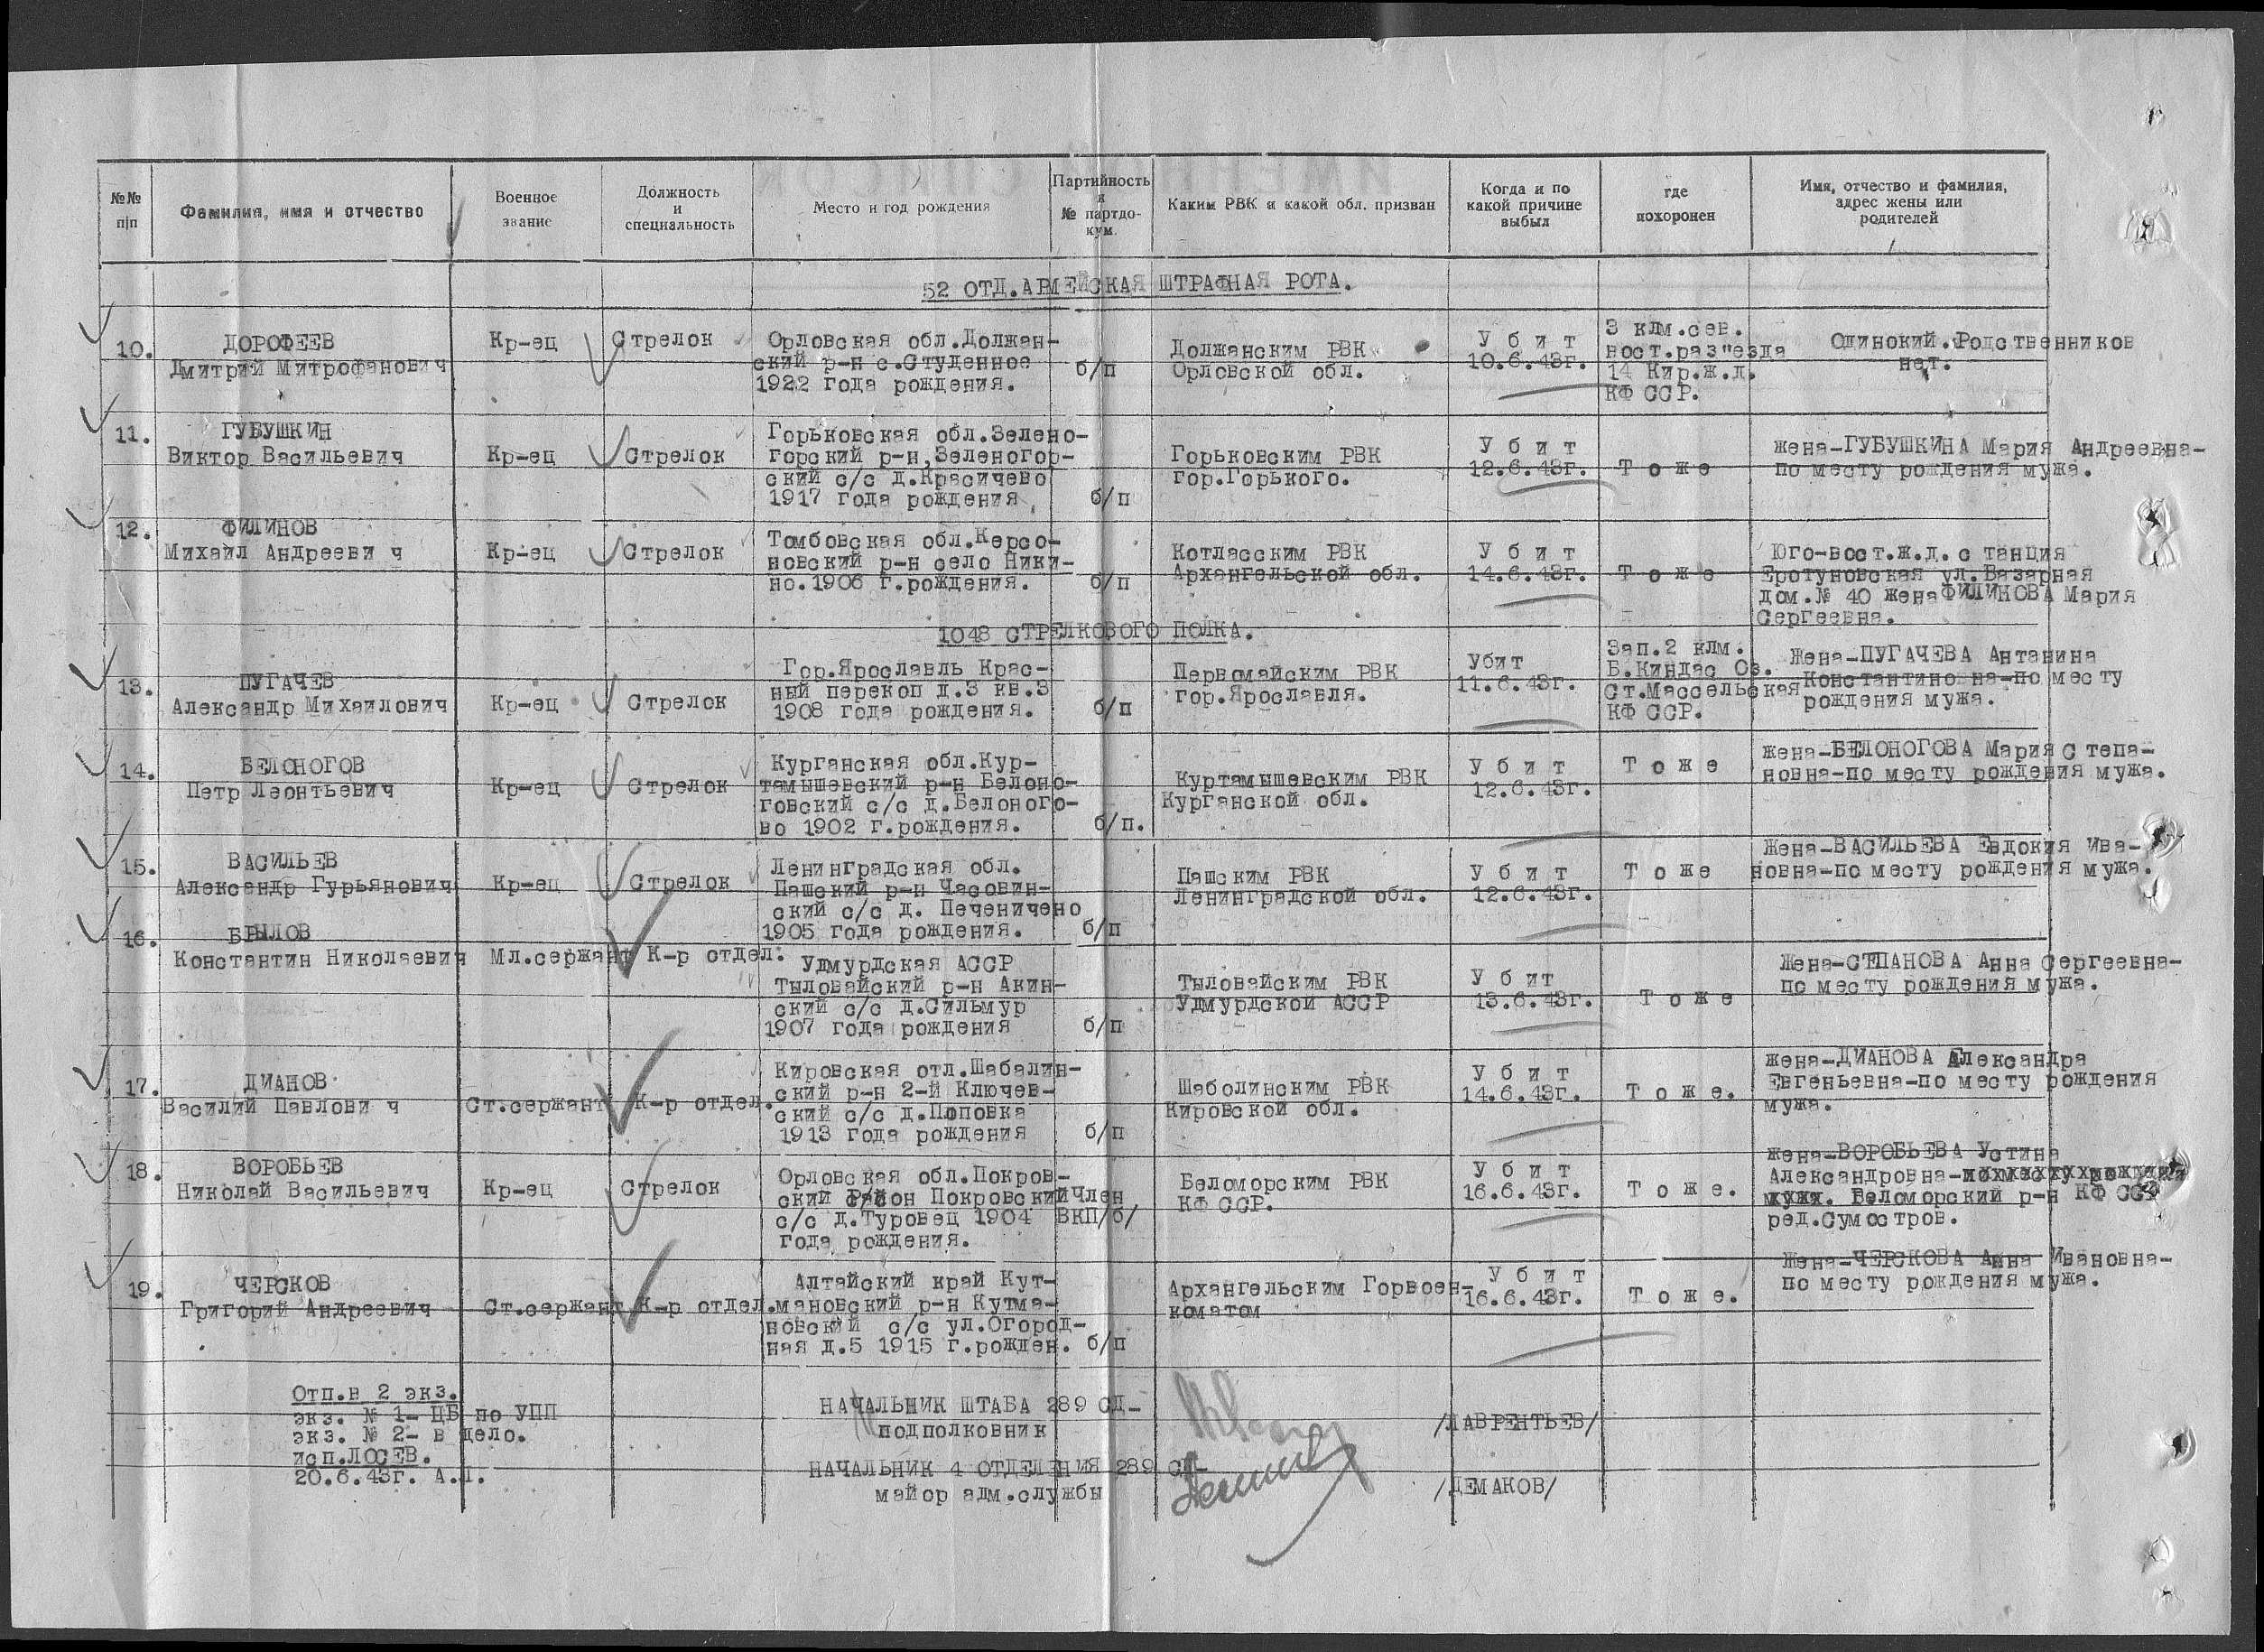 №№ п/п
Фамилия, имя и отчество
Военное звание
Должность и специальность
Место и год рождения
Партийность и № партдокум.
Каким РВК и какой обл. призван
Когда и по какой причине выбыл
где похоронен
Имя, отчество и фамилия, адрес жены или родителей
52 ОТД.АРМЕЙСКАЯ ШТРАФНАЯ РОТА.
10.
ДОРОФЕЕВ
Дмитрий Митрофанович
Кр-ец
Стрелок
Орловская обл.Должан-
ский р-н с.Студенное
1922 года рождения.
б/п
Должанским РВК
Орловской обл.
У б и т
10.6.43г.
3 клм.сев.
вост.раз"езда
14 Кир.ж.д.
КФ ССР.
Одинокий.Родственников
нет.
11.
ГУБУШКИН
Виктор Васильевич
Кр-ец
Стрелок
Горьковская обл.Зелено-
горский р-н,Зеленогор-
ский с/с д.Красичево
1917 года рождения
б/п
Горьковским РВК
гор.Горького.
У б и т
12.6.43г.
Т о ж е
жена-ГУБУШКИНА Мария Андреевна-
по месту рождения мужа.
12.
ФИЛИНОВ
Михаил Андрееви ч
Кр-ец
Стрелок
Томбовская обл.Керсо-
новский р-н село Ники-
но.1906 г.рождения.
б/п
Котласским РВК
Архангельской обл.
У б и т
14.6.43г.
Т о ж е
Юго-вост.ж.д. с танция
Еротуновская ул.Базарная
дом.№ 40 жена ФИЛИНОВА Мария
Сергеевна.
1048 СТРЕЛКОВОГО ПОЛКА.
13.
ПУГАЧЕВ
Александр Михаилович
Кр-ец
Стрелок
Гор.Ярославль Крас-
ный перекоп д.3 кв.3
1908 года рождения.
б/п
Первомайским РВК
гор.Ярославля.
Убит
11.6.43г.
Зап.2 клм.
Б.Киндас Оз.
Ст.Массельская
КФ ССР.
Жена-ПУГАЧЕВА Антанина
Константино на-по месту
рождения мужа.
14.
БЕЛОНОГОВ
Петр Леонтьевич
Кр-ец
Стрелок
Курганская обл.Кур-
тамышевский р-н Белоно-
говский с/с д.Белоного-
во 1902 г.рождения.
б/п.
Куртамышевским РВК
Курганской обл.
У б и т
12.6.43г.
Т о ж е
Жена-БЕЛОНОГОВА Мария С тепа-
новна-по месту рождения мужа.
15.
ВАСИЛЬЕВ
Александр Гурьянович
Кр-ец
Стрелок
Ленинградская обл.
Пашский р-н Часовин-
ский с/с д. Печеничено
1905 года рождения.
б/п
Пашским РВК
Ленинградской обл.
У б и т
12.6.43г.
Т о же
Жена-ВАСИЛЬЕВА Евдокия Ива-
новна-по месту рождения мужа.
16.
БРЫЛОВ
Константин Николаевич
Мл.сержант
К-р отдел.
Удмурдская АССР
Тыловайский р-н Акин-
ский с/с д.Сильмур
1907 года рождения
б/п
Тыловайским РВК
Удмурдской АССР
У б ит
13.6.43г.
Т о ж е
Жена-СТЕПАНОВА Анна Сергеевна-
по месту рождения мужа.
17.
ДИАНОВ
Василий Павлови ч
Ст.сержант
К-р отдел.
Кировская отл.Шабалин-
ский р-н 2-й Ключев-
ский с/с д.Поповка
1913 года рождения
б/п
Шаболинским РВК
Кировской обл.
У б и т
14.6.43г.
Т о ж е.
жена-ДИАНОВА Александра
Евгеньевна-по месту рождения
мужа.
18.
ВОРОБЬЕВ
Николай Васильевич
Кр-ец
Стрелок
Орловская обл.Покров-
ский район Покровский
с/с д.Туровец 1904
года рождения.
Член
ВКП/б/
Беломорским РВК
КФ ССР.
У б и т
16.6.43г.
Т о ж е.
жена-ВОРОБЬЕВА Устина
Александровна-
Беломорский р-н КФ ССР
ред.Сумостров.
19.
ЧЕРСКОВ
Григорий Андреевич
Ст.сержант
К-р отдел.
Алтайский край Кут-
мановский р-н Кутма-
новский с/с ул.Огород-
ная д.5 1915 г.рожден.
б/п
Архангельским Горвоен-
коматом
У б и т
16.6.43г.
Т о ж е.
Жена-ЧЕРСКОВА Анна Ивановна-
по месту рождения мужа.
Отп.в 2 экз.
экз. № 1- ЦБ по УПП
экз. № 2- в дело.
исп.ЛОСЕВ.
20.6.43г. А.Л.
НАЧАЛЬНИК ШТАБА 289 СД-
подполковник
/ЛАВРЕНТЬЕВ/
НАЧАЛЬНИК 4 ОТДЕЛЕНИЯ 289 СД-
майор адм.службы
/ДЕМАКОВ/